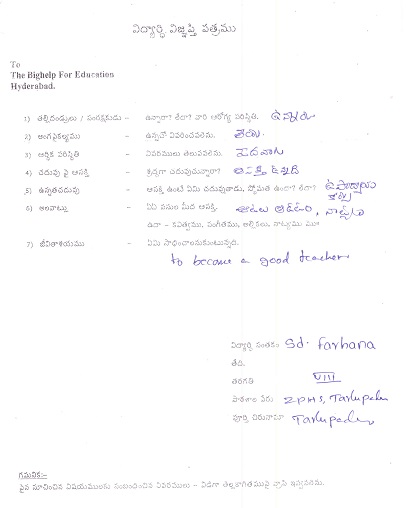 విద్యార్థి విజ్ఞప్తి పత్రము
To
The Bighelp For Education
Hyderabad.
1) తల్లిదండ్రులు / సంరక్షకుడు - ఉన్నారా? లేరా? వారి ఆరోగ్య పరిస్థితి. ఉన్నారు
2) అంగవైకల్యము - ఉన్నచో వివరించవలెను. లేదు.
3) ఆర్థిక పరిస్థితి - వివరములు తెలుపవలెను. పేదవారు
4) చదువు పై ఆసక్తి - శ్రద్ధగా చదువుచున్నారా? ఆసక్తి ఉన్నది
5) ఉన్నతచదువు - ఆసక్తి ఉంటే ఏమి చదువుతాడు, స్తోమత ఉందా? లేదా?
6) అలవాట్లు - ఏఏ పనుల మీద ఆసక్తి. ఆటలు ఆడటం,
ఉదా - కవిత్వము, సంగీతము, అల్లికలు, నాట్యము
7) జీవితాశయము - ఏమి సాధించాలనుకుంటున్నది.
to become a good teacher
విద్యార్థి సంతకం Sd. Farhana
తేది.
తరగతి VIII
పాఠశాల పేరు ZPHS, Tarlupadu
పూర్తి చిరునామా Tarlupadu
గమనిక:-
పైన సూచించిన విషయములకు సంబంధించిన వివరములు - విడిగా తెల్లకాగితముపై వ్రాసి ఇవ్వవలెను.